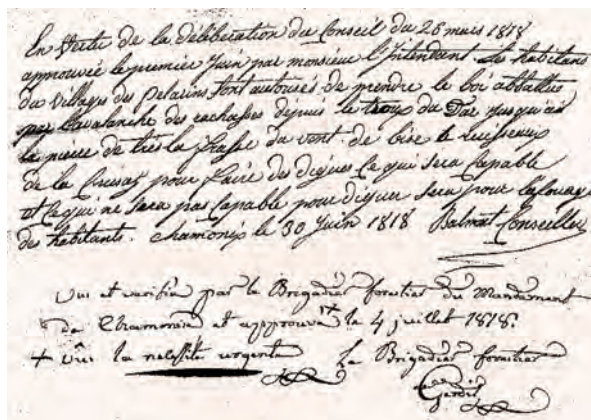 En Vertu de la déliberation du Conseil du 28 mars 1818
approuvée le premier Juin par monsieur l'Intendant Les habitans
du Villages des Pelarins sont autorisés de prendre le boi abbattus
par l'avalanche des eschasses dépuis le du Dar jusqu'as
la pièce de très la frasse du vent de bise le Ruisseux
de la Creusaz pour faire des digues Ce qui sera Capable
et Ce qui ne sera pas Capable pour diguer sera pour
des habitants. Chamonix le 30 Juin 1818 Balmat Conseiller
Vu et verifié par le Brigadier forestier du Mandement
de Chamonix et approuvé la 4 juillet 1818.
+ vûe la necessité urgente Le Brigadier forestier